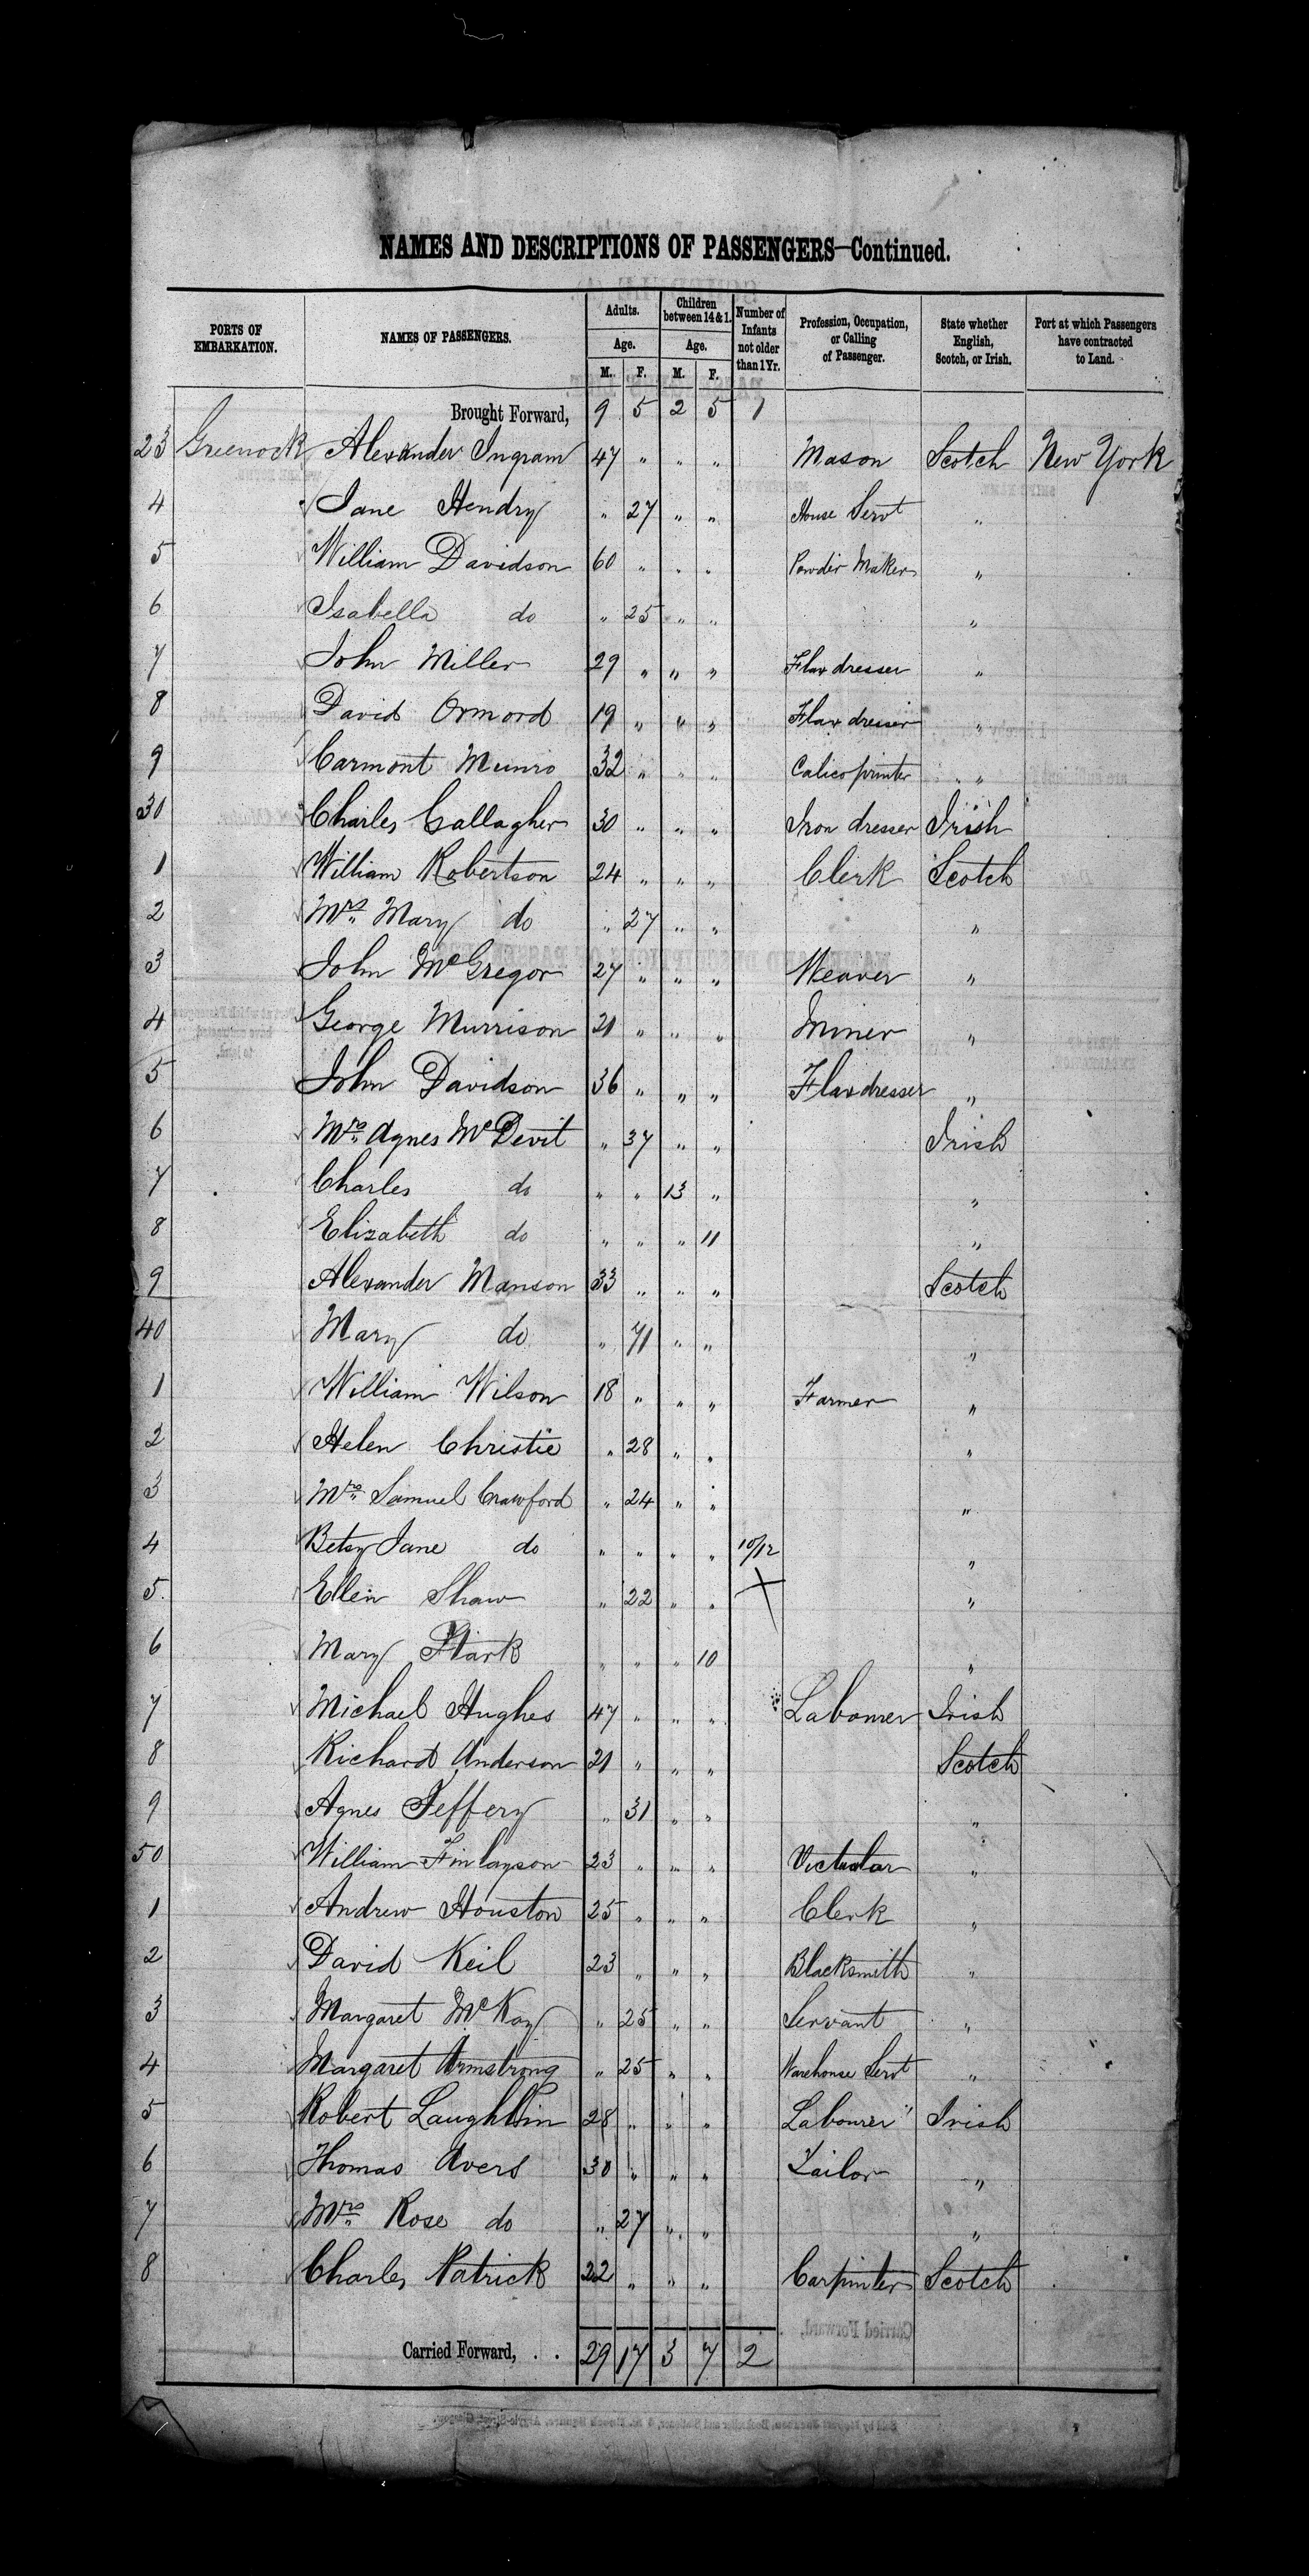 NAMES AND DESCRIPTIONS OF PASSENGERS—Continued.
PORTS OF EMBARKATION. NAMES OF PASSENGERS. Adults. Age. M. F. Children between 14 & 1. Age. M. F. Number of Infants not older than 1 Yr. Profession, Occupation, or Calling of Passenger. State whether English, Scotch, or Irish. Port at which Passengers have contracted to Land.
Brought Forward, 9 5 2 5 1
23 Greenock Alexander Ingram 47 " " " Mason Scotch New York
4 Jane Hendry " 27 " " House Servt "
5 William Davidson 60 " " " Powder Maker "
6 Isabella do " 25 " " "
7 John Miller 29 " " " Flax dresser "
8 David Ormond 19 " " " Flax dresser "
9 Carmont Munro 32 " " " Calico printer "
30 Charles Gallagher 30 " " " Iron dresser Irish
1 William Robertson 24 " " " Clerk Scotch
2 Mrs Mary do " 27 " " "
3 John McGregor 27 " " " Weaver "
4 George Murrison 21 " " " Miner "
5 John Davidson 36 " " " Flax dresser "
6 Mrs Agnes McDevit " 37 " " Irish
7 Charles do " " 13 " "
8 Elizabeth do " " " 11 "
9 Alexander Manson 33 " " " Scotch
40 Mary do " 71 " " "
1 William Wilson 18 " " " Farmer "
2 Helen Christie " 28 " " "
3 Mrs Samuel Crawford " 24 " " "
4 Betsy Jane do " " " " 10/12 "
5 Ellen Shaw " 22 " " "
6 Mary " " " 10 "
7 Michael Hughes 47 " " " Labourer Irish
8 Richard Anderson 21 " " " Scotch
9 Agnes Jeffery " 31 " " "
50 William Finlayson 23 " " " "
1 Andrew Houston 25 " " " Clerk "
2 David Keil 23 " " " Blacksmith "
3 Margaret McKay " 25 " " Servant "
4 Margaret Armstrong " 25 " " Warehouse Servt "
5 Robert Laughlin 28 " " " Labourer Irish
6 Thomas Avers 30 " " " Tailor "
7 Mrs Rose do " 27 " " "
8 Charles Patrick 22 " " " Carpinter Scotch
Carried Forward, . . 29 17 3 7 2